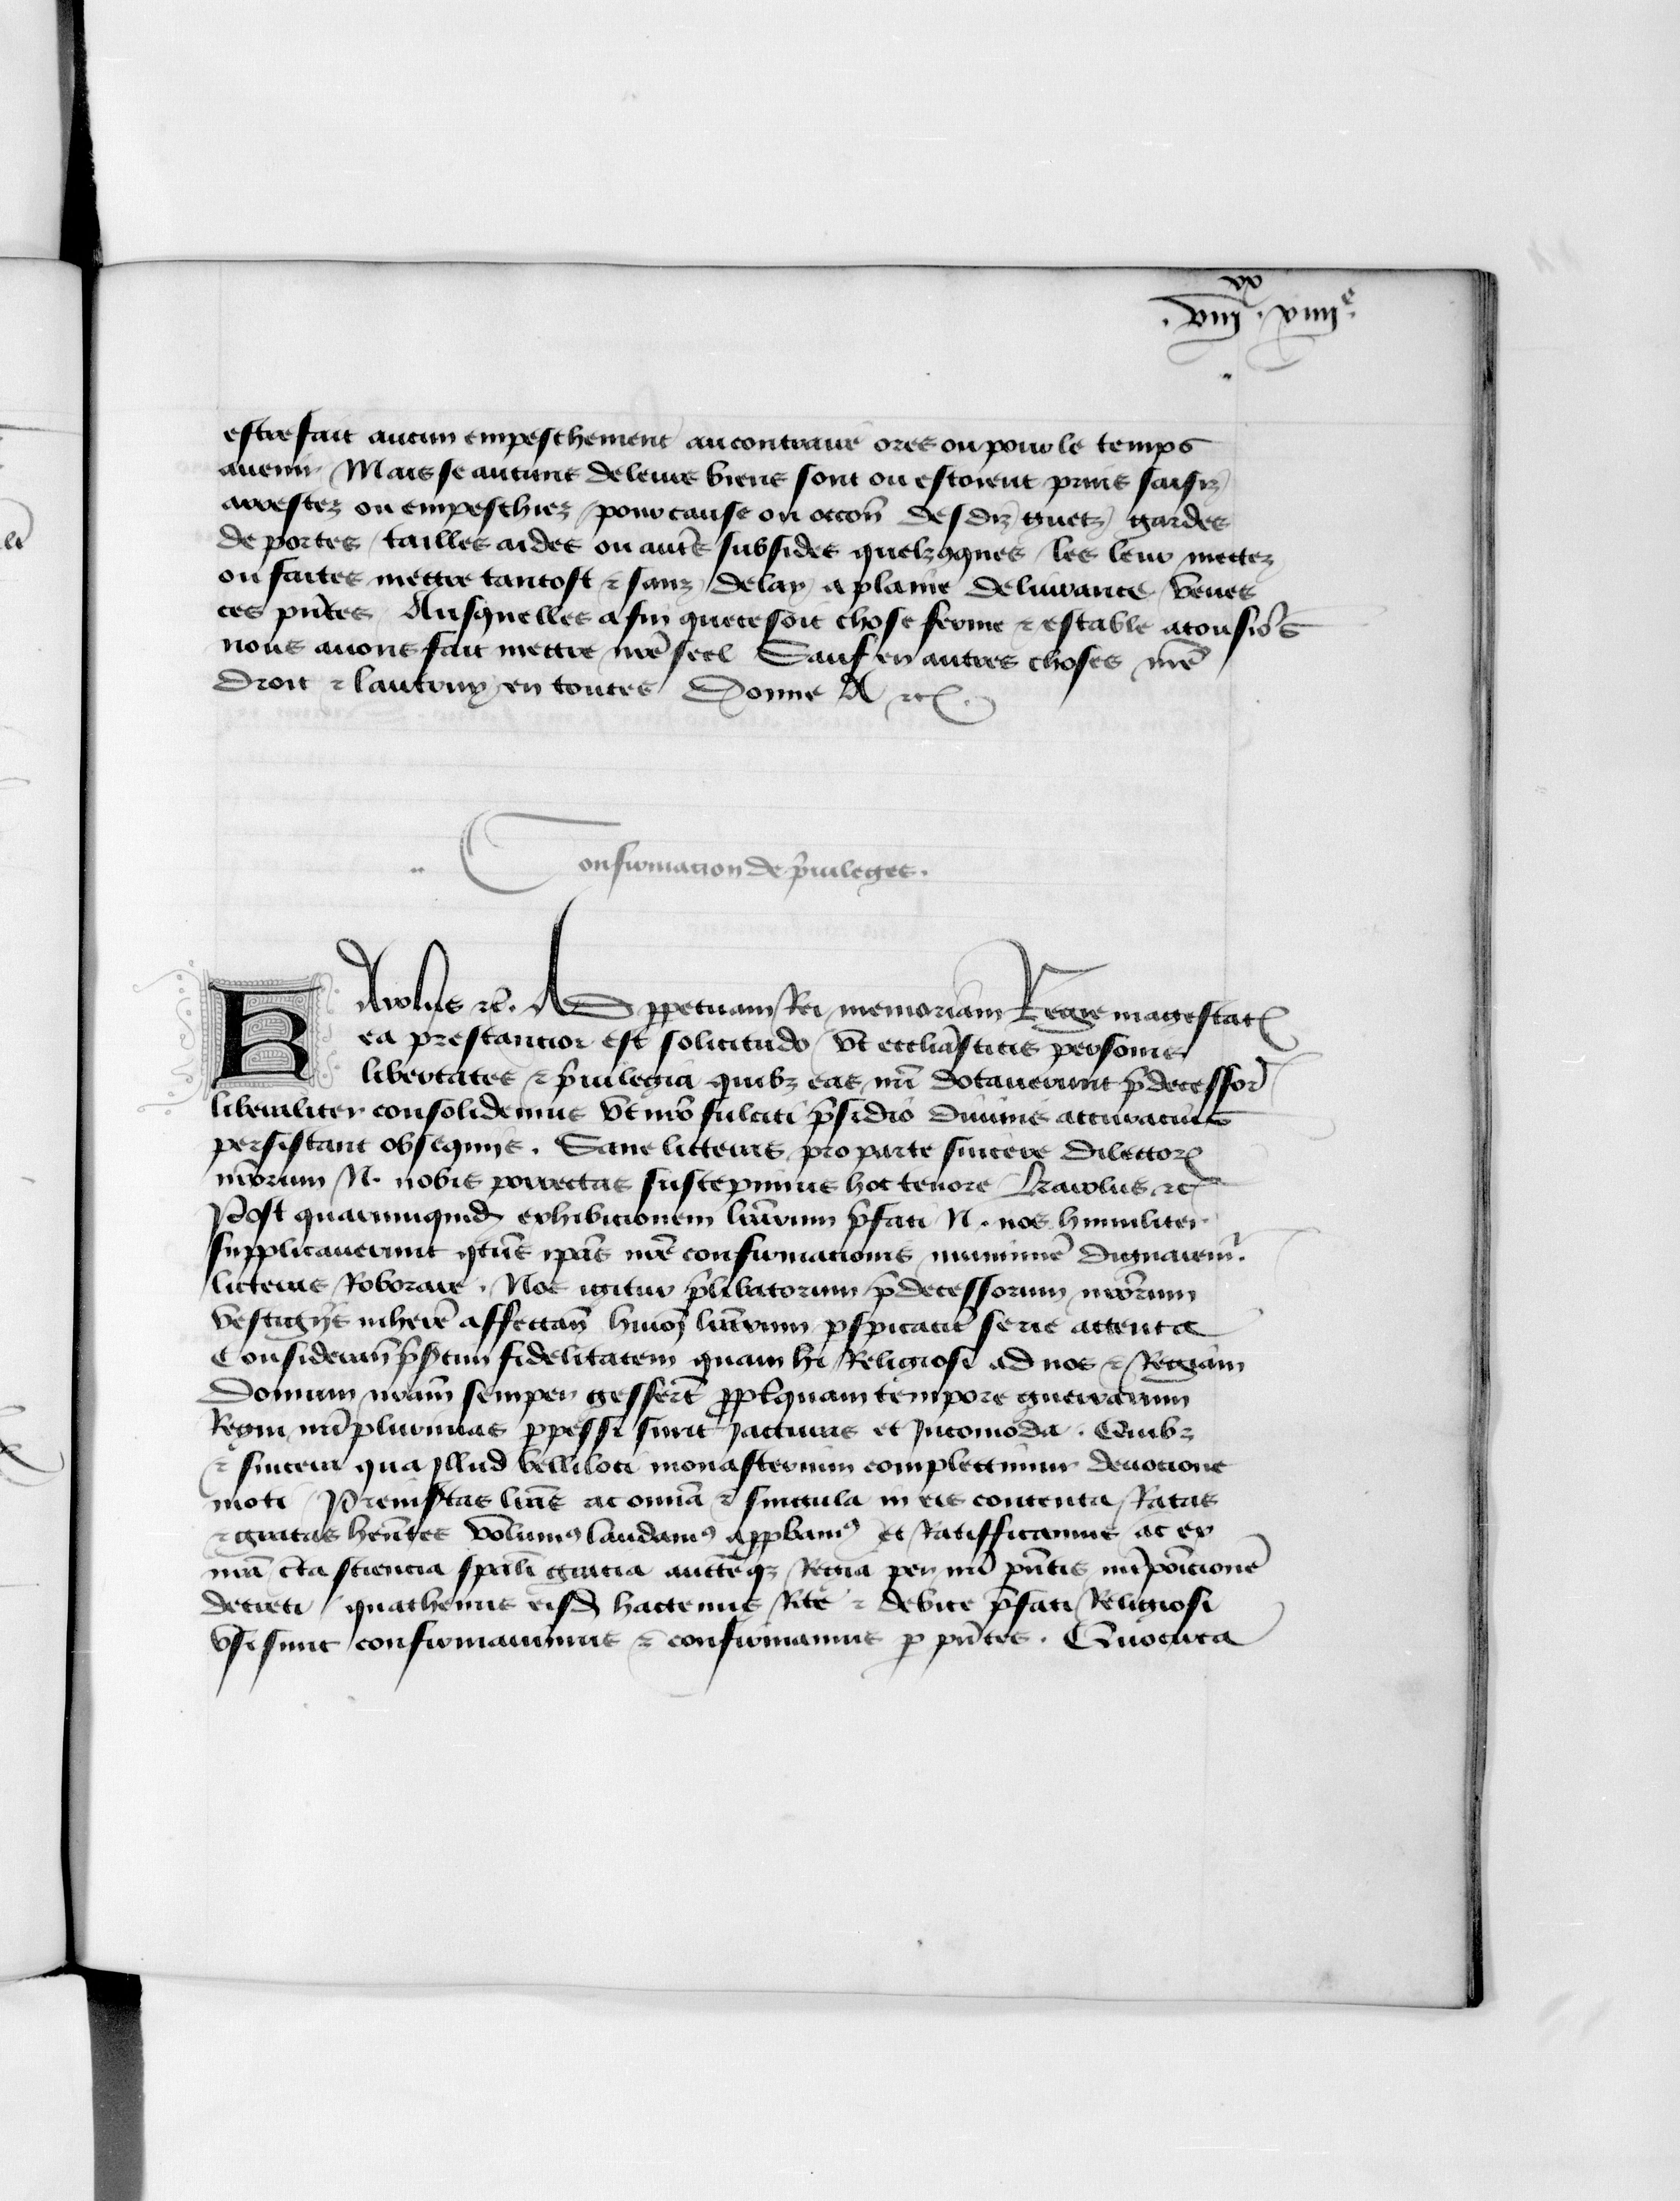 .viii. xx xviii.e
estre fait aucun empeschement aucontraire ores ou pour le temps
auenir Mais se aucuns de leurs biens sont ou estoient prins saisiz
arrestez ou empeschiez pour cause ou occon̄ des diz guetz gardes
de portes tailles aides ou aut̄s subsides quelzq̄ques les leur mettez
ou faites mettre tantost ⁊ sanz delay a plaine deliurance veues
ces pn̄tes Ausquelles afin que ce soit chose ferme ⁊ estable atousio's
nous auons fait mettre nr̄e seel Sauf en autres choses nr̄e
droit ⁊ lautruy en toutes Donne A ⁊c̄.
Confirmacion de p̄uileges.
Karolus ⁊c̄. AD ꝑpetuam Rei memoriam Regie magestat̄
ea prestancior est solicitudo vt eccl̄iasticis personis
libertates ⁊ p̄uilegia quibz eas nr̄i dotauerunt p̄decessor̄
liberaliter consolidemus vt nr̄o fulciti p̄sidio diuinis accuracius
persistant obsequijs. Sane litteras pro parte sincere dilectoꝝ
nr̄orum N. nobis porrectas suscepimus hoc tenore Karolus ⁊c̄
Post quarumquid̄ exhibicionem lr̄arum p̄fati N. nos humiliter
supplicauerunt q̄tin̄s ip̄as nr̄e confirmacionis munimīe dignarem̄.
licteras Roborare. Nos igitur p̄libatorum p̄decessorum nr̄orum
vestigijs inherē affectan̄ huiōi lr̄arum ꝑspicacit̄ serie attenta
Consideran̄ fidelitatem quam hi Religiosi ad nos ⁊ Regiam
Domum nr̄am semper gesser̄t tempore guerrarum
Regni nr̄i plurimas ꝑpessi sunt jacturas et Jncomoda. Quibz
⁊ sincera qua jllud belliloci monasterium complectimur deuocione
moti Premissas lr̄as ac om̄ia ⁊ singula in eis contenta Ratas
⁊ gratas hen̄tes volumꝰ laudamꝰ app̄bamꝰ et Ratifficamus ac ex
nr̄a c̄ta sciencia sp̄ali gracia auct̄eqz Regia per nr̄i pn̄tis
decreti quathenus eisd̄ hactenus Rite ⁊ debite p̄fati Religiosi
vsi sunt confirmauimus ⁊ confirmamus ꝑ pn̄tes. Quocirca